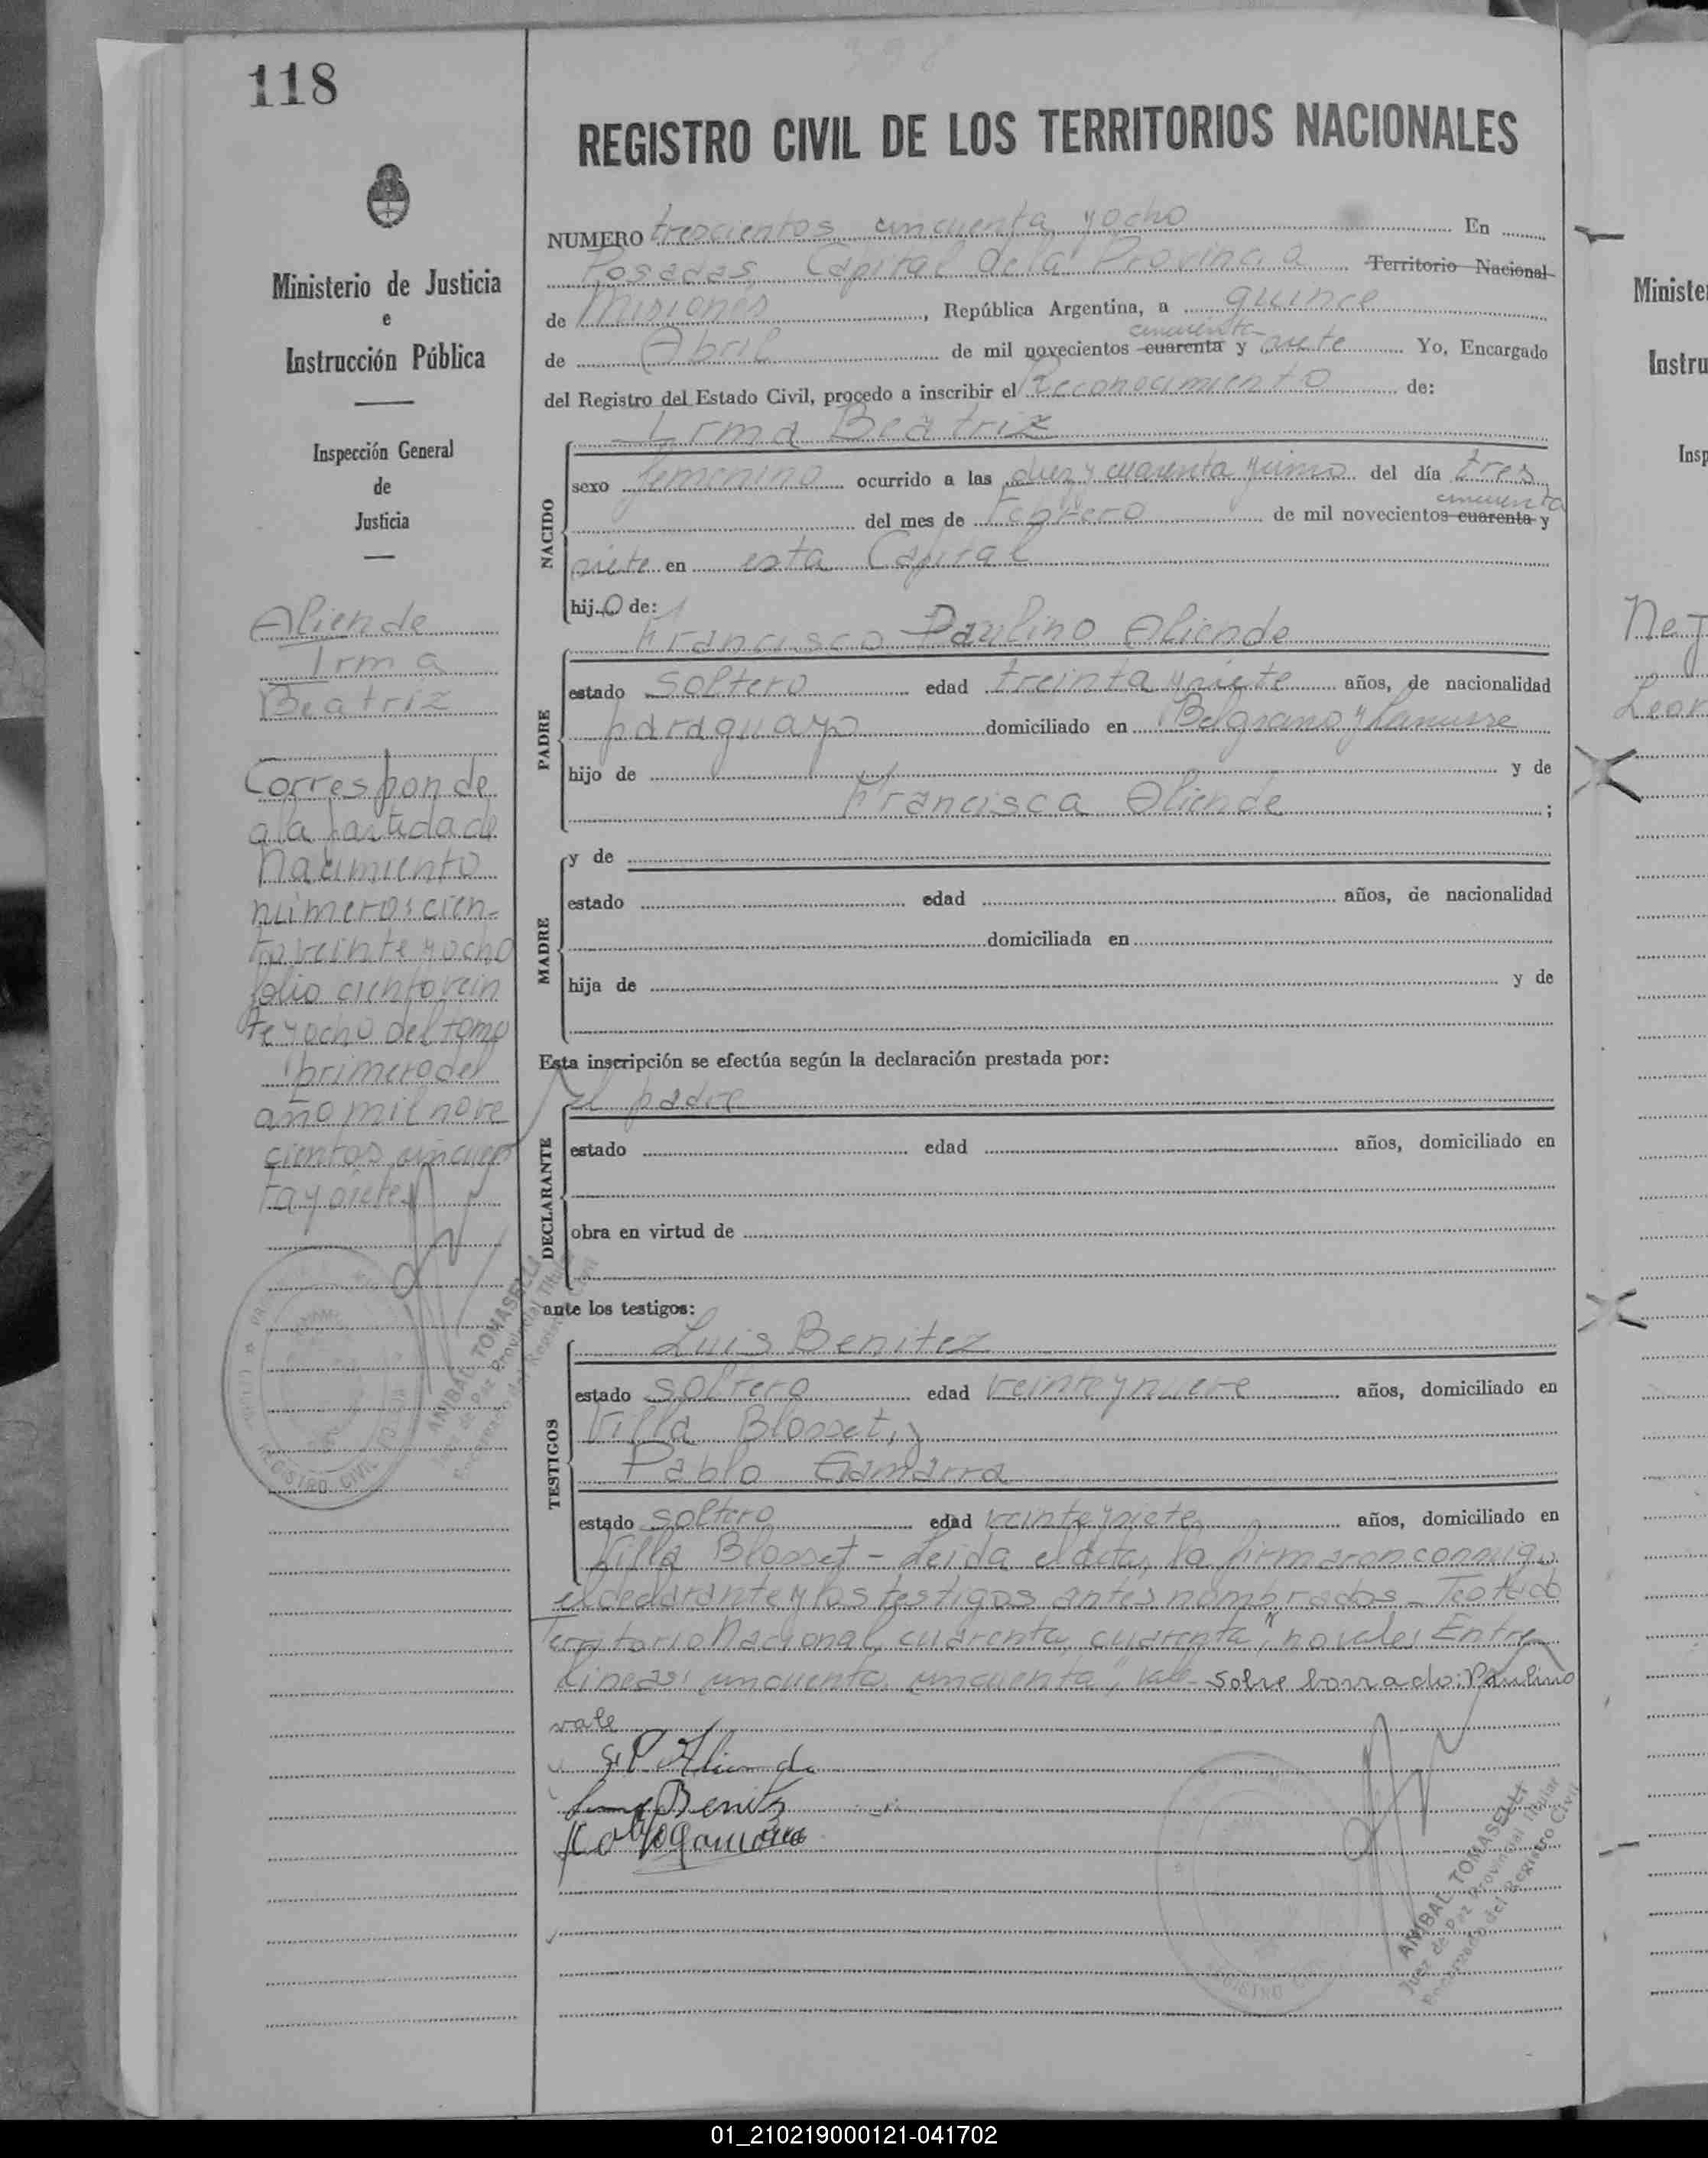 118
Ministerio de Justicia
e
Instrucción Pública
Inspección General
de
Justicia
Aliende
Irma
Beatriz
Corresponde
a la partida de
Nacimiento
número: cien-
to veinte y ocho
folio ciento vein
te y ocho del tomo
primero del
año mil nove
cientos cincuen
ta y siete
REGISTRO CIVIL
ANIBAL TOMASELLI
Juez de Paz Provincial Titular
Encargado del Registro Civil
REGISTRO CIVIL DE LOS TERRITORIOS NACIONALES
NUMERO trescientos cincuenta y ocho En
Posadas Capital de la Provincia Territorio Nacional
de Misiones, República Argentina, a quince
cincuenta
de Abril de mil novecientos cuarenta y siete Yo, Encargado
del Registro del Estado Civil, procedo a inscribir el Reconocimiento de:
NACIDO
Irma Beatriz
sexo femenino ocurrido a las diez y cuarenta y cinco del día tres
cincuenta
del mes de Febrero de mil novecientos cuarenta y
siete en esta Capital
hij o de:
PADRE
Francisco Paulino Aliende
estado soltero edad treinta y siete años, de nacionalidad
paraguayo domiciliado en Belgrano y Lanusse
hijo de y de
Francisca Aliende ;
MADRE
y de
estado edad años, de nacionalidad
domiciliada en
hija de y de
Esta inscripción se efectúa según la declaración prestada por:
DECLARANTE
el padre
estado edad años, domiciliado en
obra en virtud de
ante los testigos:
TESTIGOS
Luis Benitez
estado soltero edad veinte y nueve años, domiciliado en
Villa Blosset, y
Pablo Gamarra
estado soltero edad veinte y siete años, domiciliado en
Villa Blosset - Leida el acta, la firmaron conmigo
el declarante y los testigos antes nombrados - Testado
Territorio Nacional, cuarenta, cuarenta", no vale: Entre
lineas: cincuenta, cincuenta", vale - sobre borrado: Paulino
vale
Aliende
Benitz
Pablo Gamarra
ANIBAL TOMASELLI
Juez de Paz Provincial Titular
Encargado del Registro Civil
Ministe
Instru
Insp
01_210219000121-041702